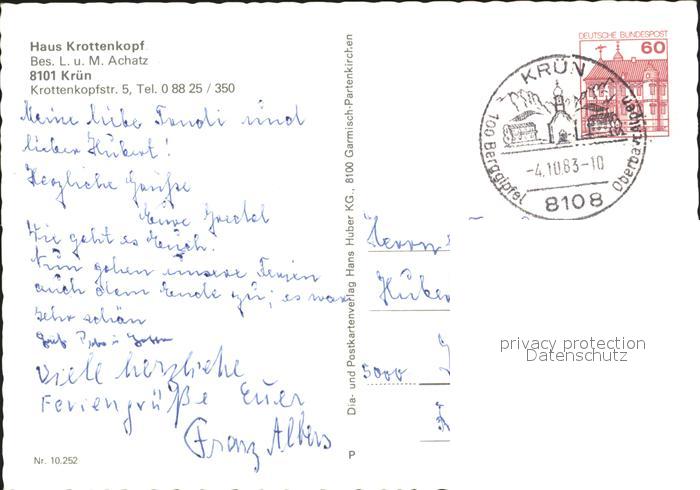 Haus Krottenkopf
Bes. L. u. M. Achatz
8101 Krün
Krottenkopfstr. 5, Tel. 0 88 25 / 350
Meine liebe Trudi und
lieber Hubert!
Herzliche Grüße
Eure Gretel
Wie geht es Euch.
Nun gehen unsere Ferien
auch dem Ende zu; es war
sehr schön
Viele herzliche
Feriengrüße Euer
Franz Albers
Nr. 10.252
Dia- und Postkartenverlag Hans Huber KG., 8100 Garmisch-Partenkirchen
P
DEUTSCHE BUNDESPOST
60
KRÜN
100 Berggipfel
Oberbayern
-4.10.83-10
8108
Herrn
Huber
5000
privacy protection
Datenschutz